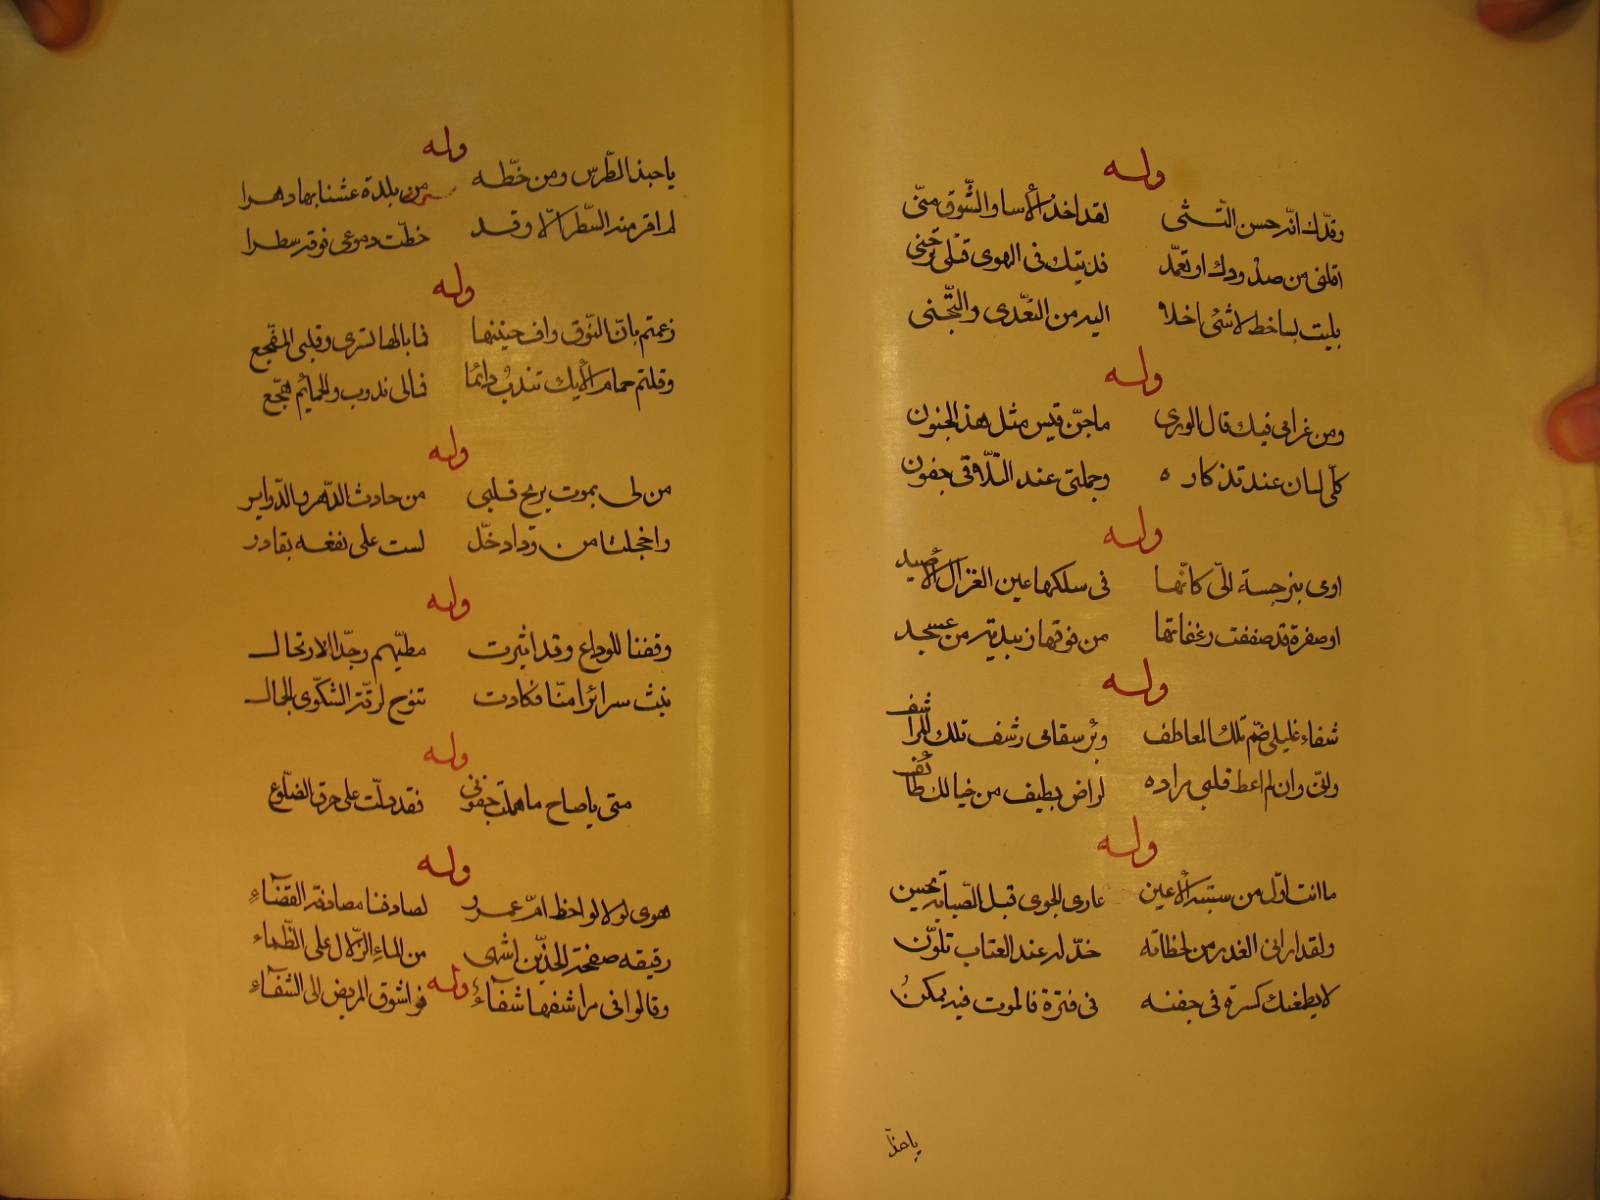 وله
وقدّك انّه حسن التثنى لقد اخذ الأسا والشّوق منّى
اقلنى من صدودك او تعمّد فديتك فى الهوى قتلى ترحنى
بليت بساخط لا شئ احلا اليه من التعّدى والتّجنى
وله
ومن غرامى فيك قال الورى ما جنّ قيس مثل هذ الجنون
كلّى لسان عند تذكاره وجملتى عند التّلاقى جفون
وله
اومى بنرجسة الىّ كانّها فى سلكها عين الغزال الأصيد
او صفرة قد صففت رغفاتها من فوقها زبديّه من عسجد
وله
شفاء غليلى ضم تلك المعاطف وبرّ سقامى رشف تلك المراشف
وانّى وان لم اعط قلبى مراده لراض بطيف من خيالك طائف
وله
ما انت اوّل من سبته الأعين عارى الجوى قبل الصّبابة تحسن
ولقد ارانى الغدر من لحظاته خدّ له عند العتاب تلوّن
لا يطغينك كسرة فى جفنه فى فترة فالموت فيه يمكنُ
ياحبذا
وله
ياحبذ الطّرس ومن خطّه من بلدة عشنا بها دهرا
لم اقر منه السّطر الّا وقد خطّت دموعى فوقه سطرا
وله
زعمتم بانّ النّوق واف حنينها فما بالها تسرى وقلبى المفّجع
وقلتم حمام الأيك تندبُ دائما فمالى ندوب والحمايُم هجّع
وله
من لى بموت يريح قلبى من حادث الدّهر والدّواير
واخجلتا من وداد خلّ لست على نفعه بقادر
وله
وقفنا للوداع وقد اثيرت مطيّهم وجدّ الارتحال
نبث سرائرا منّا فكادت تنوح لرقّة الشكّوى الجمال
وله
متى ياصاح ما هملت جفونى فقد دلّت على حرق الضلّوع
وله
هوى لولا لواحظ امّ عمرو لصادفنا مصادفة القضآء
رقيقه صفحة الخدّين اشهى من المآء الزّلال على الظّماء
وله
وقالوا فى مراشفها شفآء فواشوق المريض الى الشفآء